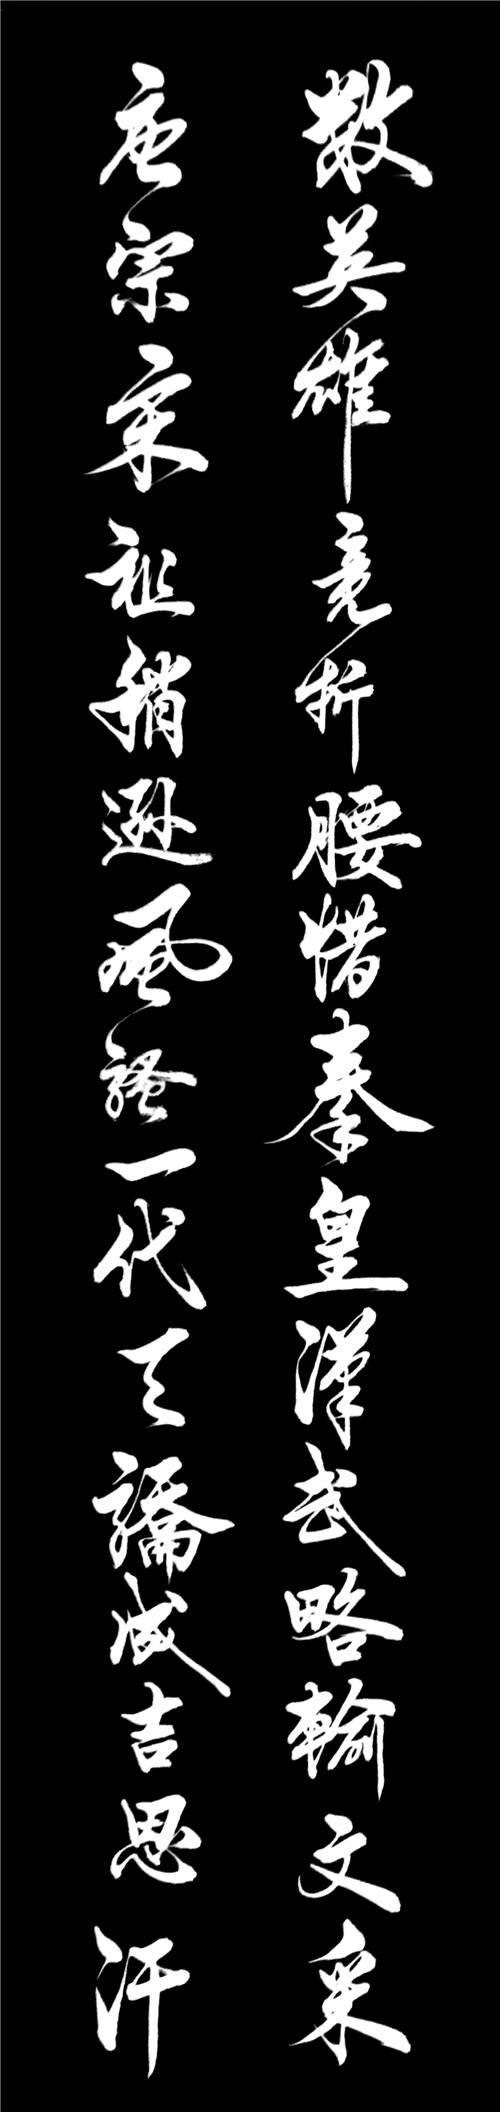 數英雄竞折腰惜秦皇漢武略輸文采
唐宗宋祖稍遜風騷一代天驕成吉思汗